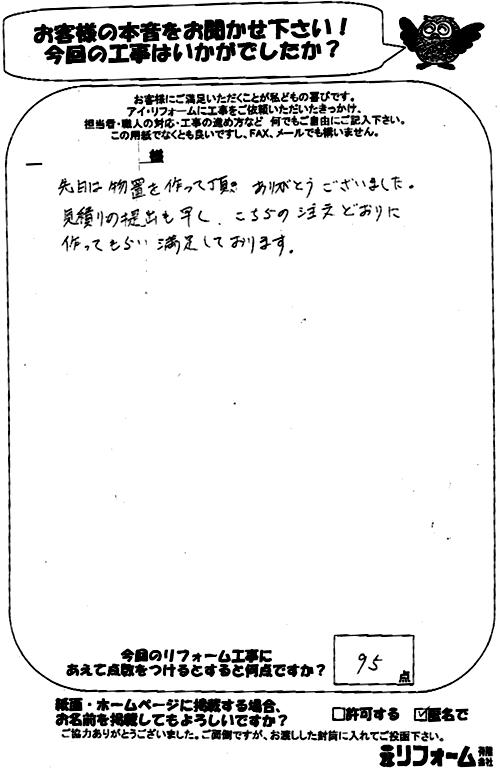 お客様の本音をお聞かせ下さい！
今回の工事はいかがでしたか？
お客様にご満足いただくことが私どもの喜びです。
アイ・リフォームに工事をご依頼いただいたきっかけ、
担当者・職人の対応・工事の進め方など 何でもご自由にご記入下さい。
この用紙でなくとも良いですし、FAX、メールでも構いません。
様
先日は物置を作って頂き ありがとうございました。
見積りの提出も早く、こちらの注文どおりに
作ってもらい満足しております。
今回のリフォーム工事に
あえて点数をつけるとすると何点ですか？
95 点
紙面・ホームページに掲載する場合、
お名前を掲載してもよろしいですか？
□許可する ☑匿名で
ご協力ありがとうございました。ご面倒ですが、お渡しした封筒に入れてご投函下さい。
リフォーム 有限会社